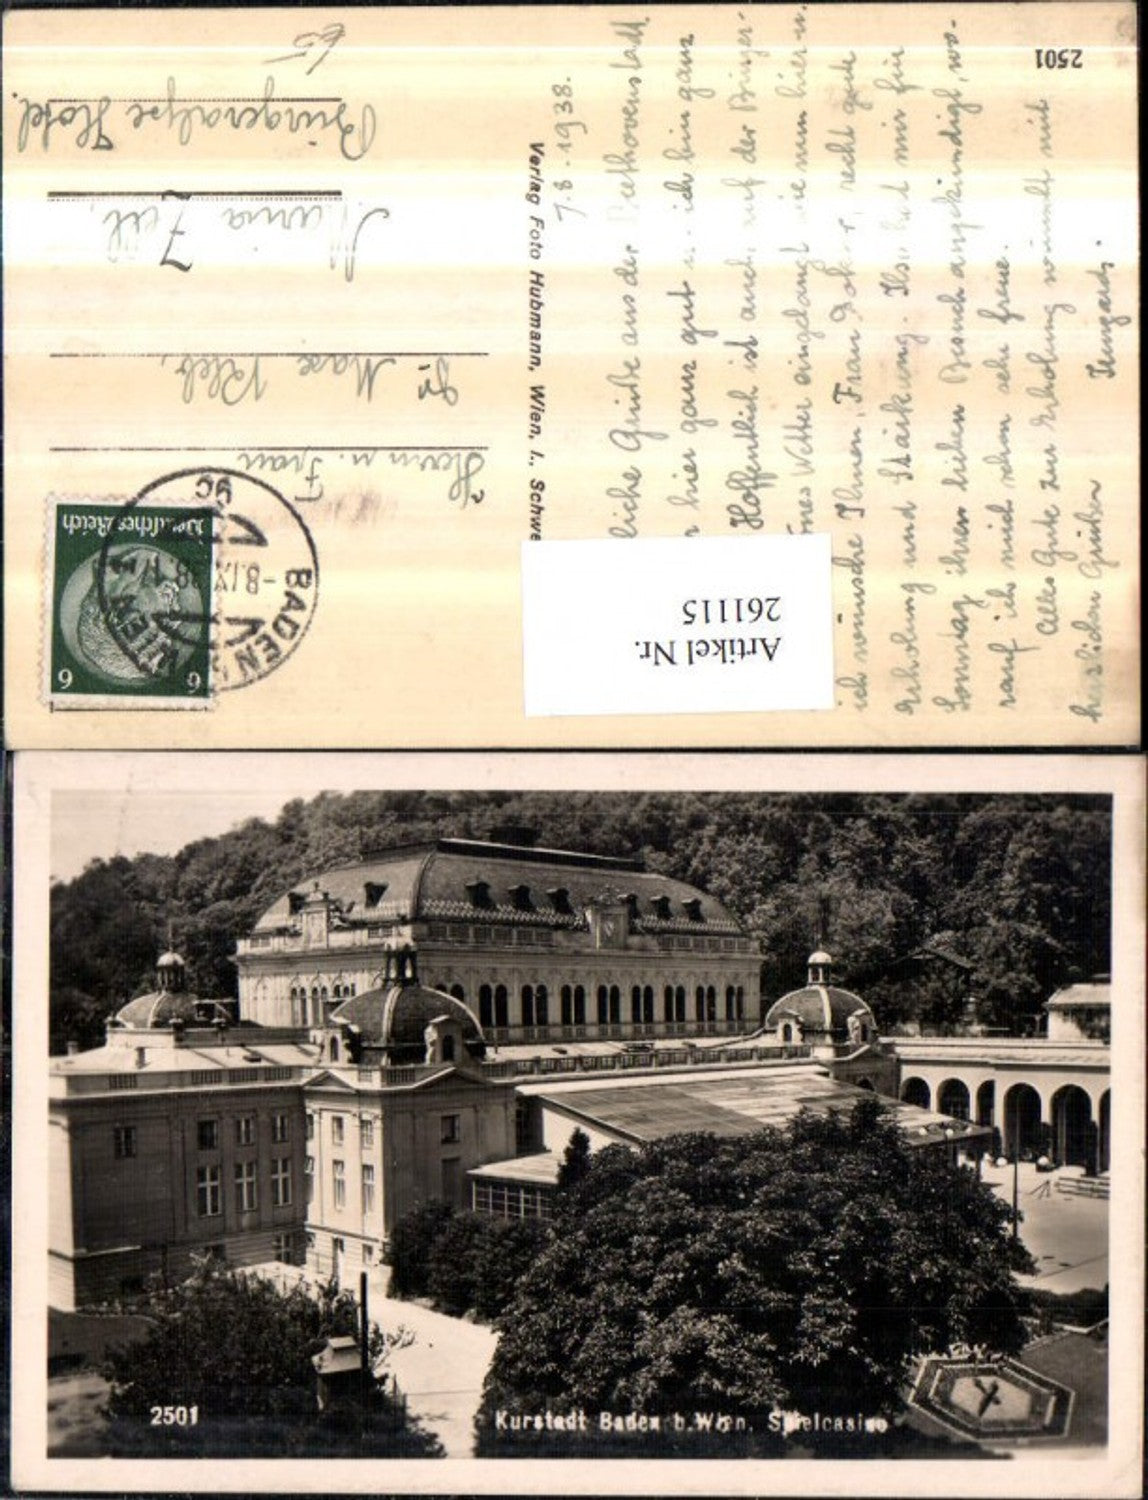 2501
Verlag Foto Hubmann, Wien, I., Schwe
7.8.1938.
liche Grüße aus der Beethovenstadt.
hier ganz gut u. ich bin ganz
Hoffentlich ist auch auf der Bürger-
Wetter eingelangt wie nun hier u.
ich wünsche Ihnen, Frau Doktor, recht gute
Erholung und Stärkung. hat mir für
Sonntag ihren lieben Besuch angekündigt, wo-
rauf ich mich schon sehr freue.
Alles Gute zur Erholung wünscht mit
herzlichen Grüßen
Irmgard.
Artikel Nr.
261115
Deutsches Reich
6 6
BADEN WIEN
-8.IX.38.17
9c
Herrn u. Frau
Dr. Max
Maria Zell,
Bürgeralpe Hotel.
65
2501
Kurstadt Baden b. Wien, Spielcasino